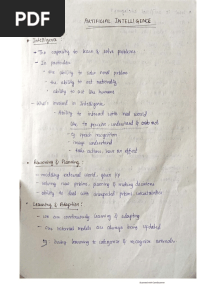 PDF
ARTIFICIAL INTELLIGENCE
• Intelligence
- The capacity to learn & solve problems
- In particular
- the ability to solve novel problem
- the ability to act rationally
- the ability to act like humans
- What's involved in Intelligence
- Ability to interact with real world
to perceive, understand & act
speech recognition
Image understand
take actions, have an effect
• Reasoning & Planning
- modelling external world, given i/p
- solving new problem, planning & making decisions
- ability to deal with unexpected problem, uncertainties
• Learning & Adaption
- we are continuously learning & adapting
- our internal models are always being updated